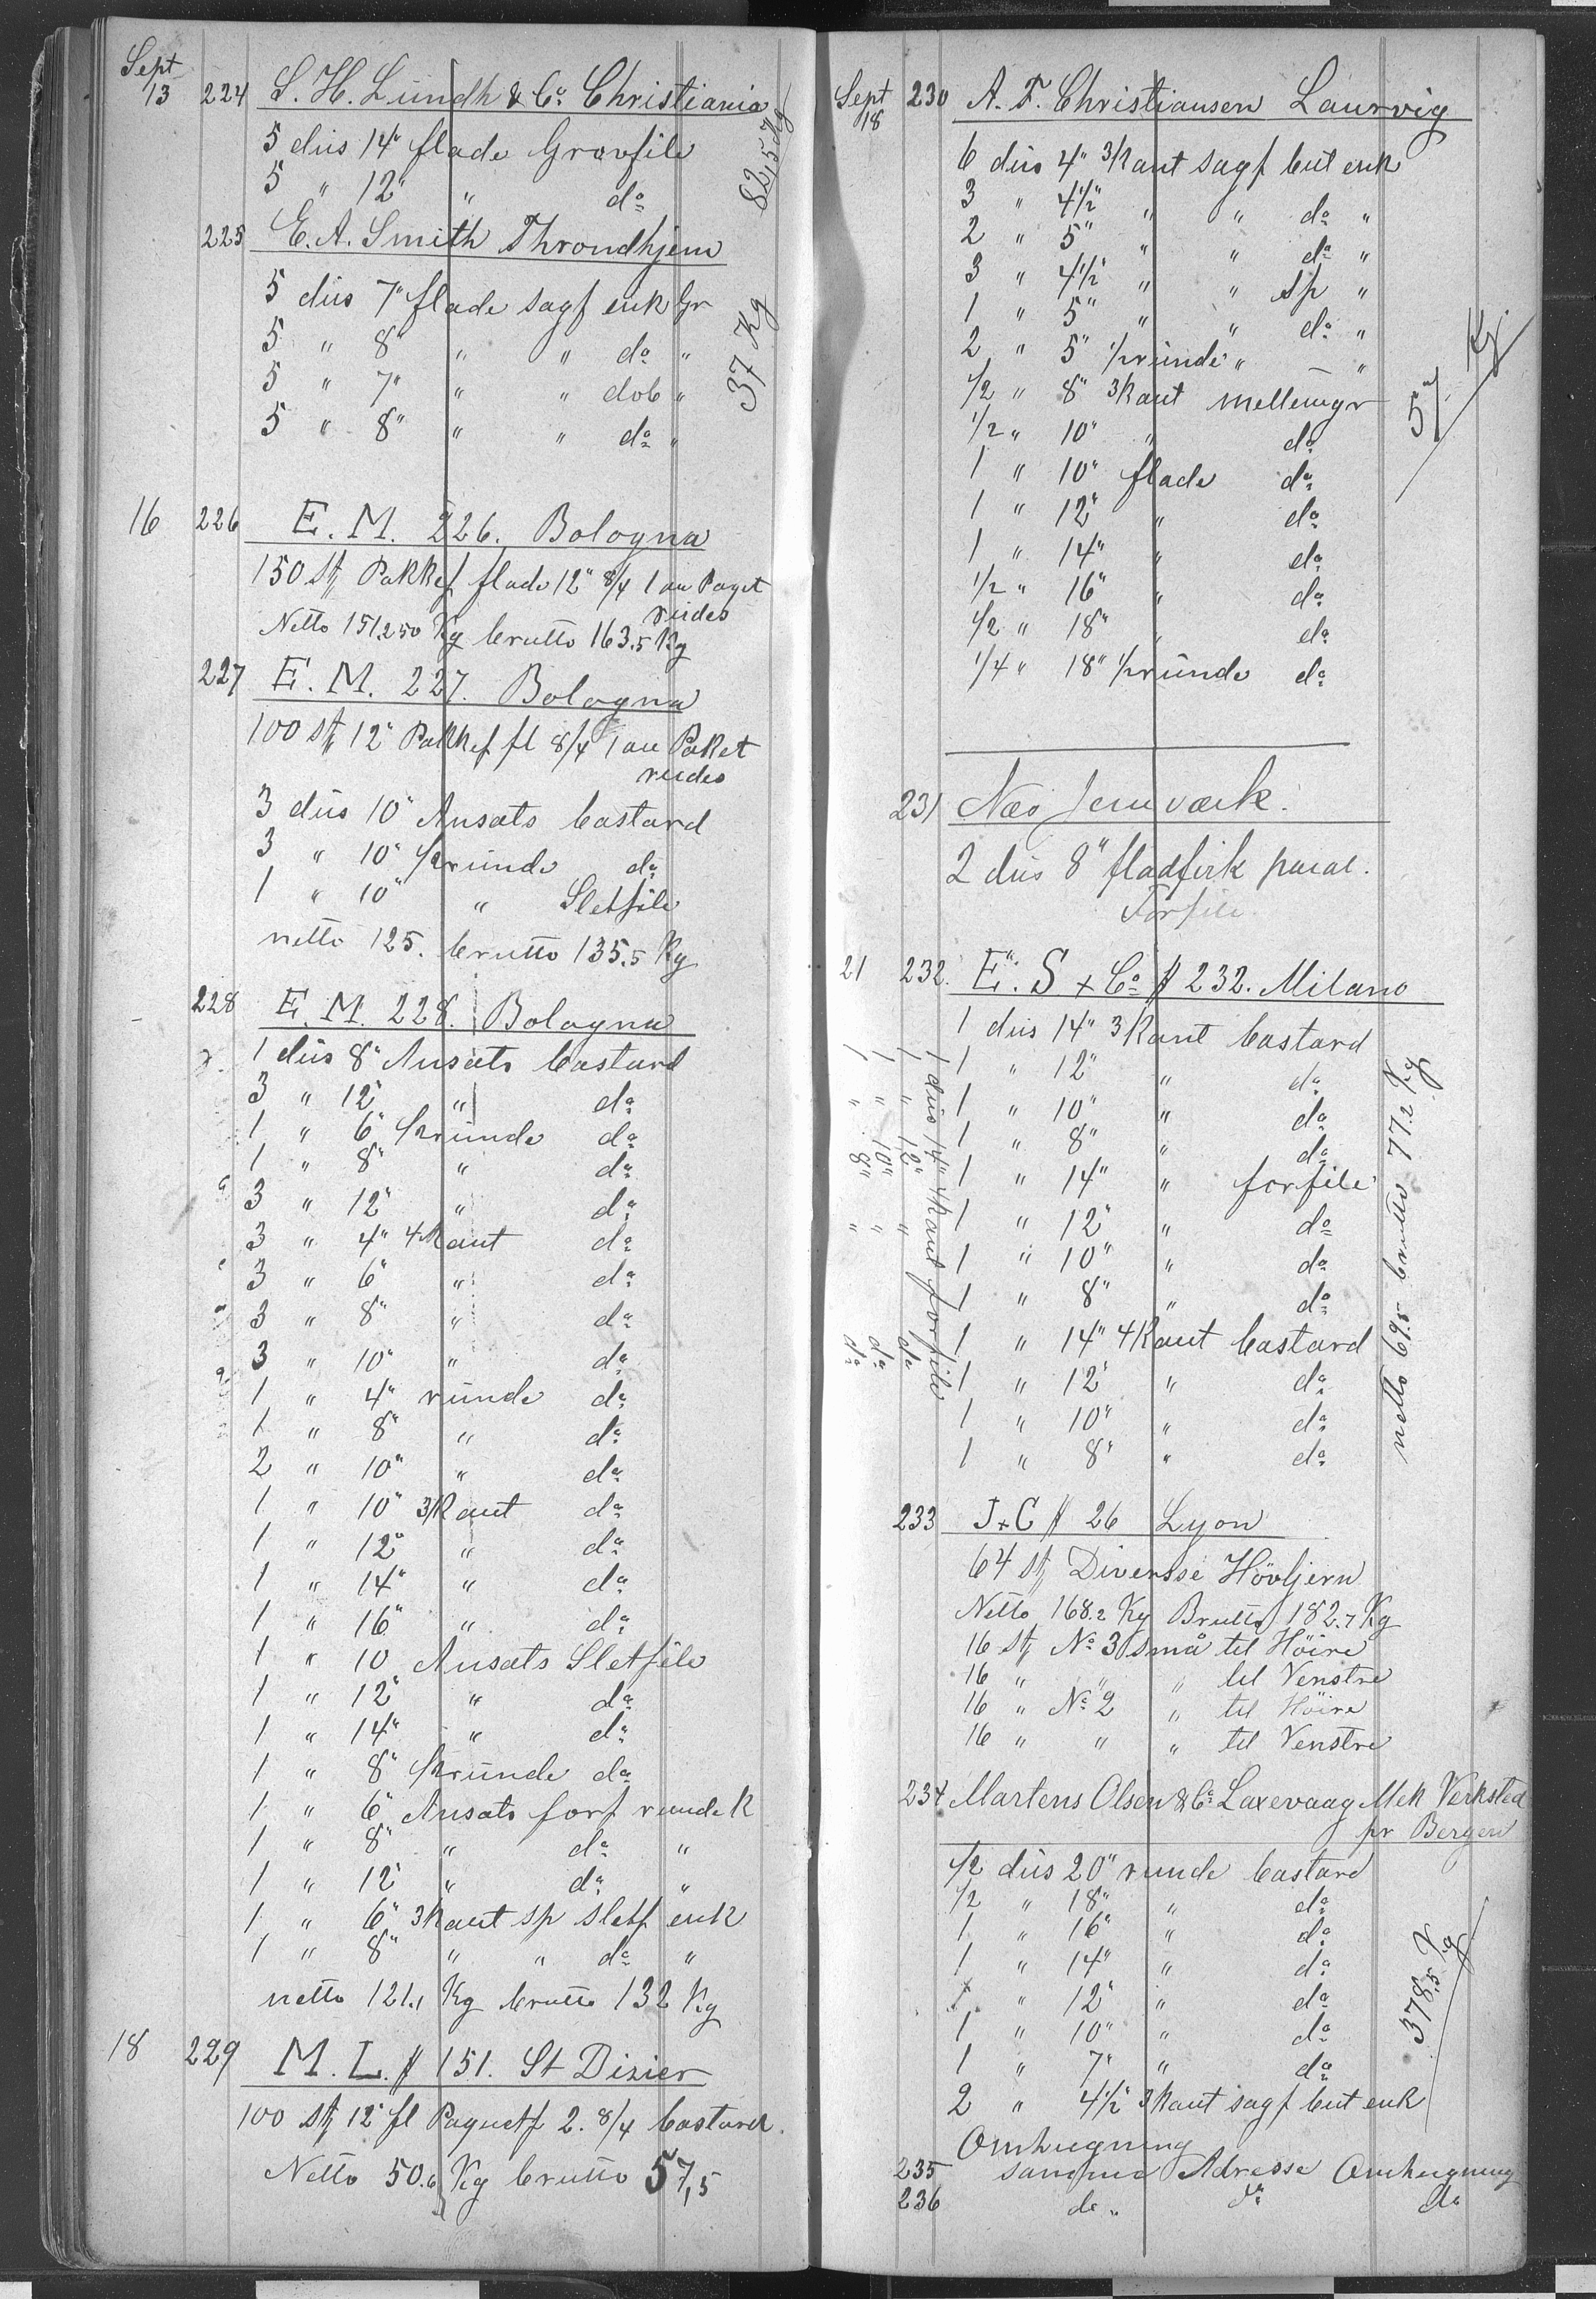 Sept
13 224 S. H. Lundh & Co. Christiania
5 dus 14" flade Grovfile
5 " 12" " do
82,5 Kg
225 E. A. Smith Throndhjem
5 dus 7" flade sagf enk Gr
5 " 8" " " do "
5 " 7" " " dob "
5 " 8" " " do "
37 Kg
16 226 E. M. 226. Bologna
150 st Pakkef flade 12" 8/4 1 au Paget
rudes
Netto 151.250 Kg brutto 163.5 Kg
227 E. M. 227. Bologna
100 st 12" Pakkef fl 8/4 1 au Paket
rudes
3 dus 10" Ansats bastard
3 " 10" 1/2runde do
1 " 10" " Sletfile
netto 125. brutto 135.5 Kg
228 E. M. 228. Bologna
1 dus 8" Ansats bastard
3 " 12" " do
1 " 6" 1/2runde do
1 " 8" " do
3 " 12" " do
3 " 4" 4kant do
3 " 6" " do
3 " 8" " do
3 " 10" " do
1 " 4" runde do
1 " 8" " do
2 " 10" " do
1 " 10" 3kant do
1 " 12" " do
1 " 14" " do
1 " 16" " do
1 " 10 Ansats Sletfile
1 " 12" " do
1 " 14" " do
1 " 8" 1/2runde do
1 " 6" Ansats forf runde K
1 " 8" " do "
1 " 12" " do "
1 " 6" 3kant sp sletf enk
1 " 8" " " do "
netto 121.1 Kg brutto 132 Kg
18 229 M. L. # 151. St Dizier
100 st 12" fl Paquetf 2. 8/4 bastard.
Netto 50.6 Kg brutto 57,5
Sept
18 230 A. F. Christiansen Laurvig
6 dus 4" 3kant sagf but enk
3 " 4 1/2" " " do "
2 " 5" " " do "
3 " 4 1/2" " " sp "
1 " 5" " " do "
2 " 5" 1/2runde " "
1/2 " 8" 3kant mellemgr
1/2 " 10" " do
1 " 10" flade do
1 " 12" " do
1 " 14" " do
1/2 " 16" " do
1/2 " 18" " do
1/4 " 18" 1/2runde do
Kg
231 Næs Jernværk.
2 dus 8" fladfirk paral.
Forfile
21 232. E. S & Co # 232. Milano
1 dus 14" 3kant bastard
1 " 12" " do
1 " 10" " do
1 " 8" " do
1 " 14" " forfile
1 " 12" " do
1 " 10" " do
1 " 8" " do
1 " 14" 4kant bastard
1 " 12" " do
1 " 10" " do
1 " 8" " do
1 dus 14" 4kant forfile
1 " 12" " do
1 " 10" " do
1 " 8" " do
netto 69.5 brutto 77.2 Kg
233 J & C # 26 Lyon
64 st Diversse Hövljern
Netto 168.2 Kg Brutto 182.7 Kg
16 st No 3 små til Höire
16 " " " til Venstre
16 " No 2 " til Höire
16 " " " til Venstre
234 Martens Olsen & Co Laxevaag Mek Verksted
pr Bergen
1/2 dus 20" runde bastard
1/2 " 18" " do
1 " 16" " do
1 " 14" " do
1 " 12" " do
1 " 10" " do
1 " 7" " do
2 " 4 1/2" 3kant sagf but enk
378.5 Kg
Omhugning
235 samme Adresse Omhugning
236 do " do do